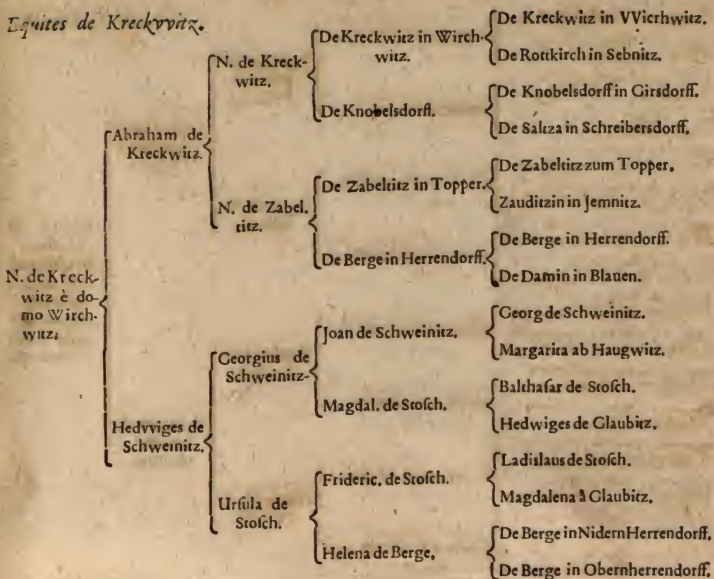 Equites de Kreckvvitz.
N. de Kreck-
witz è do-
mo Wirch-
witz;
Abraham de
Kreckwitz.
Hedvviges de
Schweinitz.
N. de Kreck-
witz.
N. de Zabel.
titz.
Georgius de
Schweinitz-
Ursula de
Stosch.
De Kreckwitz in Wirch-
witz.
De Knobelsdorff.
De Zabeltitz in Topper.
De Berge in Herrendorff.
Joan de Schweinitz.
Magdal. de Stosch.
Frideric. de Stosch.
Helena de Berge.
De Kreckwitz in VVierhwitz.
De Rottkirch in Sebnitz.
De Knobelsdorff in Girsdorff.
De Saltza in Schreibersdorff.
De Zabeltitz zum Topper.
Zauditzin in Jemnitz.
De Berge in Herrendorff.
De Damin in Blauen.
Georg de Schweinitz.
Margarita ab Haugwitz.
Balthasar de Stosch.
Hedwiges de Glaubitz.
Ladislaus de Stosch.
Magdalena à Glaubitz.
De Berge in Nidern Herrendorff.
De Berge in Obernherrendorff.